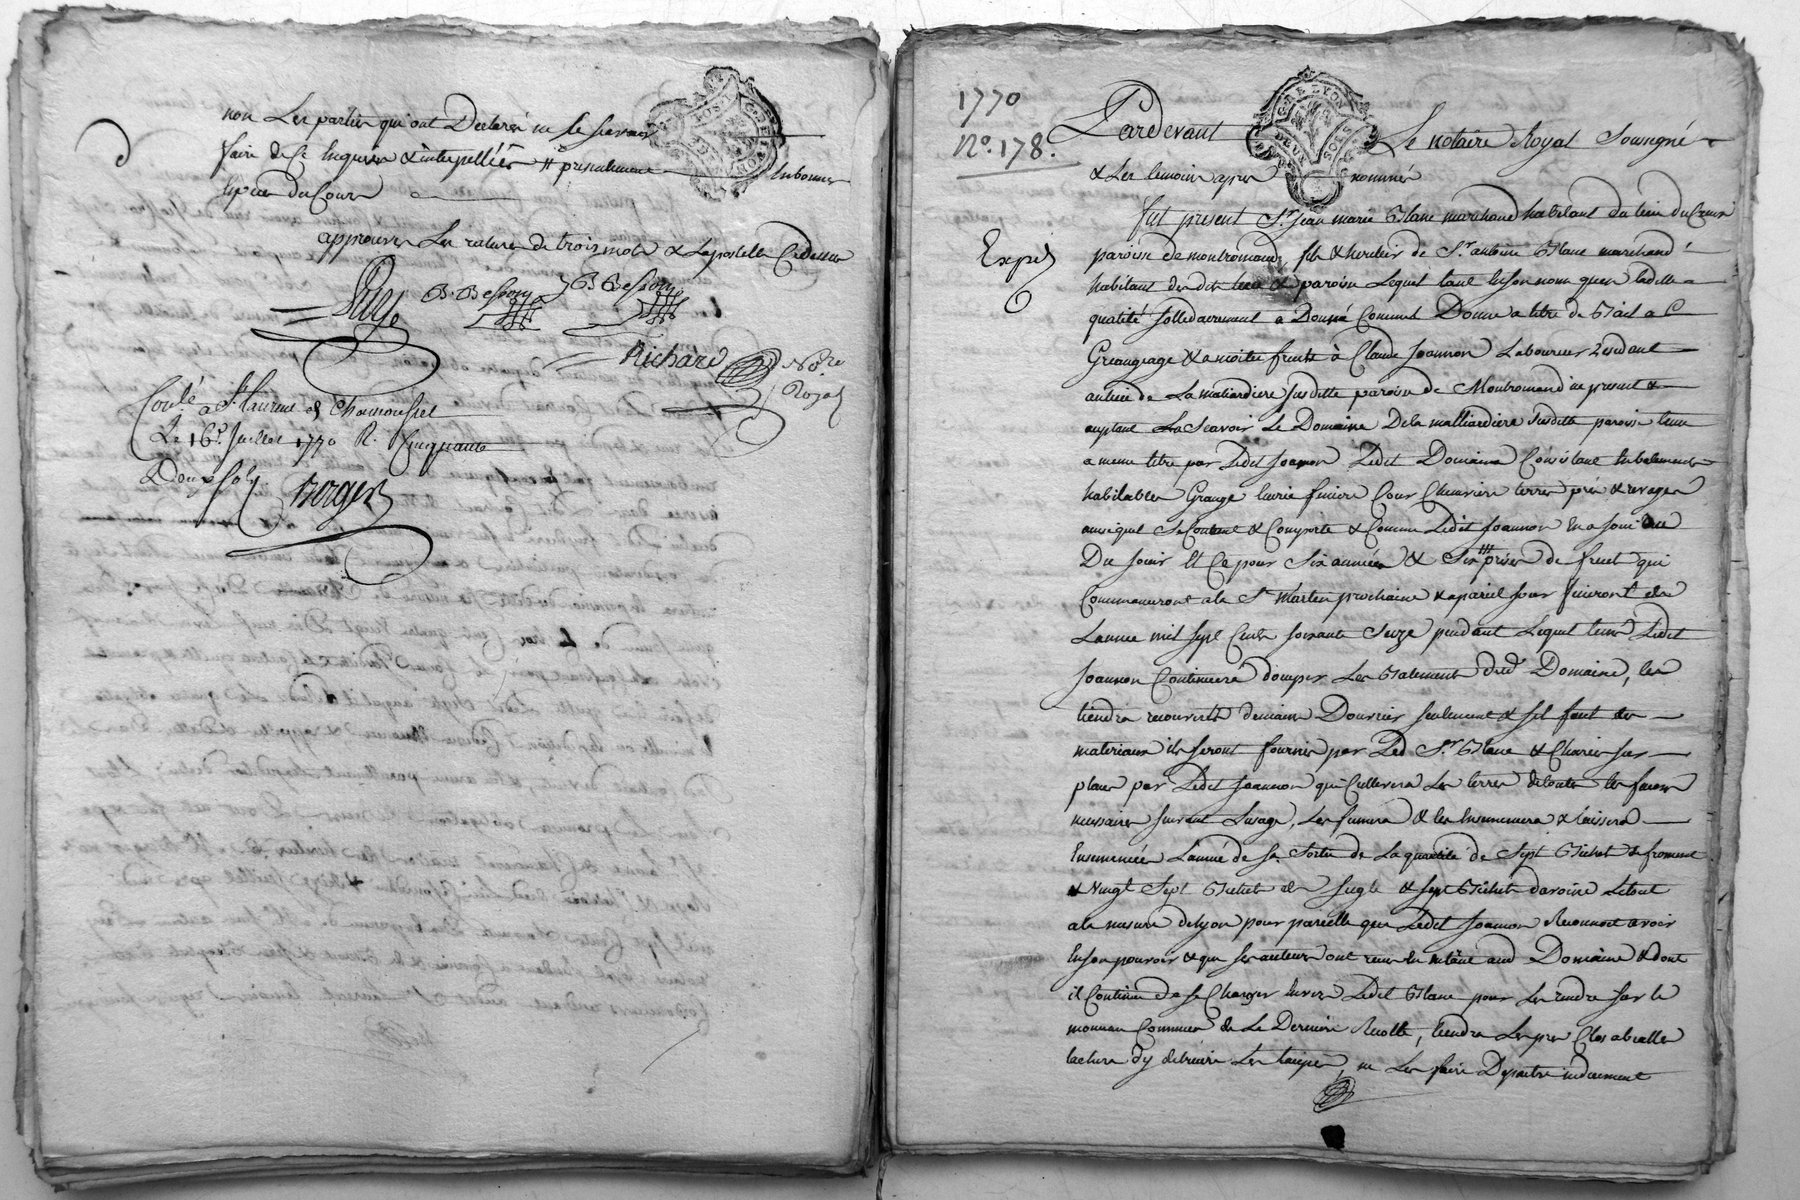 non Les parties qui ont Declaré ne le scavoir
faire de ce Enquises & interpellées # presentement
En bonnes
Especes du Cours
approuver Les ratures de trois mots & Lapostille Cy dessus
B. Besson B Besson
Richard No.re
Royal
Conlé a St. Laurent de Chamousset
Le 16e. Juillet 1770 R. Cinquante
& Douze sols Berger
1770
No. 178.
G. DE LYON
DEUX SOLS
Pardevant Le notaire Royal Soussigné
& Les temoins apres nommés
Expé
fut present Sr. Jean marie Blanc marchand habitant du lieu du Creux
paroisse de montromand, fils & heritier de Sr. antoine Blanc marchand
habitant des dits lieu & paroisse Lequel tant En son nom quen ladite
qualité sollidairement a Donné Comme il Donne a titre de Bail a
Greangeage & a moitié fruits à Claude Joannon Laboureur Residant
au lieu de La maliardiere susditte paroisse de Montromand ice present &
aceptant La Scavoir Le Domaine De la malliardiere susditte paroisse tenu
a meme titre par Ledit Joannon Ledit Domaine Consistant En batiments
habitables Grange Ecurie feniere Cour Cheneviere terres prés & rivages
ainsi quil Se Contient & Comporte & Comme Ledit Joannon En a joui ou
Du jouir Et Ce pour Six années & Six prises de fruit qui
Commenceront a la St. Martin prochaine & a pareil jour finiront de
Lannée mil sept Cents soixante Seize pendant Lequel tems Ledit
Joannon Continuera doccuper Les Batiments dud. Domaine, les
tiendra recouverts de main Douvrier seulement & sil faut des
materiaux ils seront fournis par Led. Sr. Blanc & Chariés sur
place par Ledit Joannon qui Cultivera Les terres de toutes les facons
necessaires suivant Lusage, Les fumera & les Ensemencera & laissera
Ensemencée Lannée de sa Sortie de La quantité de Sept Bichets de froment
& Vingt Sept Bichets de Seigle & sept Bichets davoine Letout
ala mesure de Lyon pour pareille que Ledit Joannon Reconnoit avoir
En son pouvoir & que ses auteurs ont recu En Entrant aud. Domaine & dont
il Continue de se Charger Envers Ledit Blanc pour Les rendre sur le
monceau Commun de Le Derniere Recolte, tiendra Les prés Clos abreuves
tachera dy detruire Les taupes, ne Les faire Depaitre induement